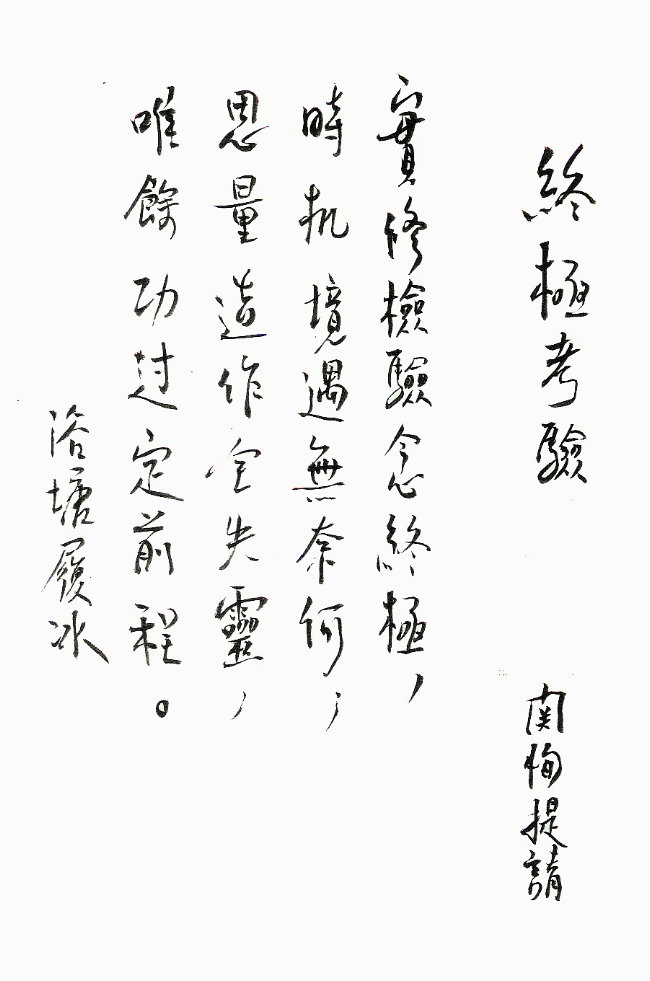 終極考驗
関恂提請
實修檢驗念終極，
時机境遇無奈何；
思量造作全失靈，
唯餘功过定前程。
浴塘履冰